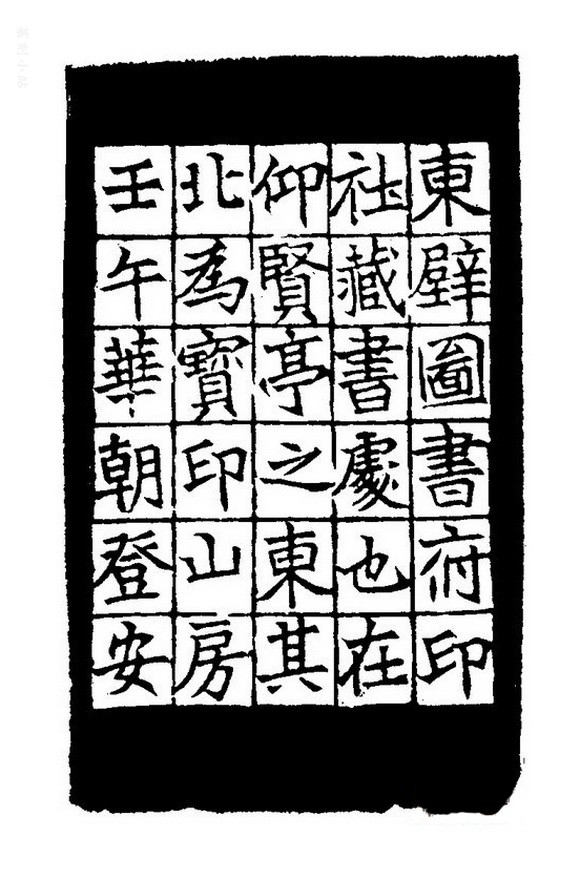 東壁圖書府印
社藏書處也在
仰賢亭之東其
北為寶印山房
壬午華朝登安